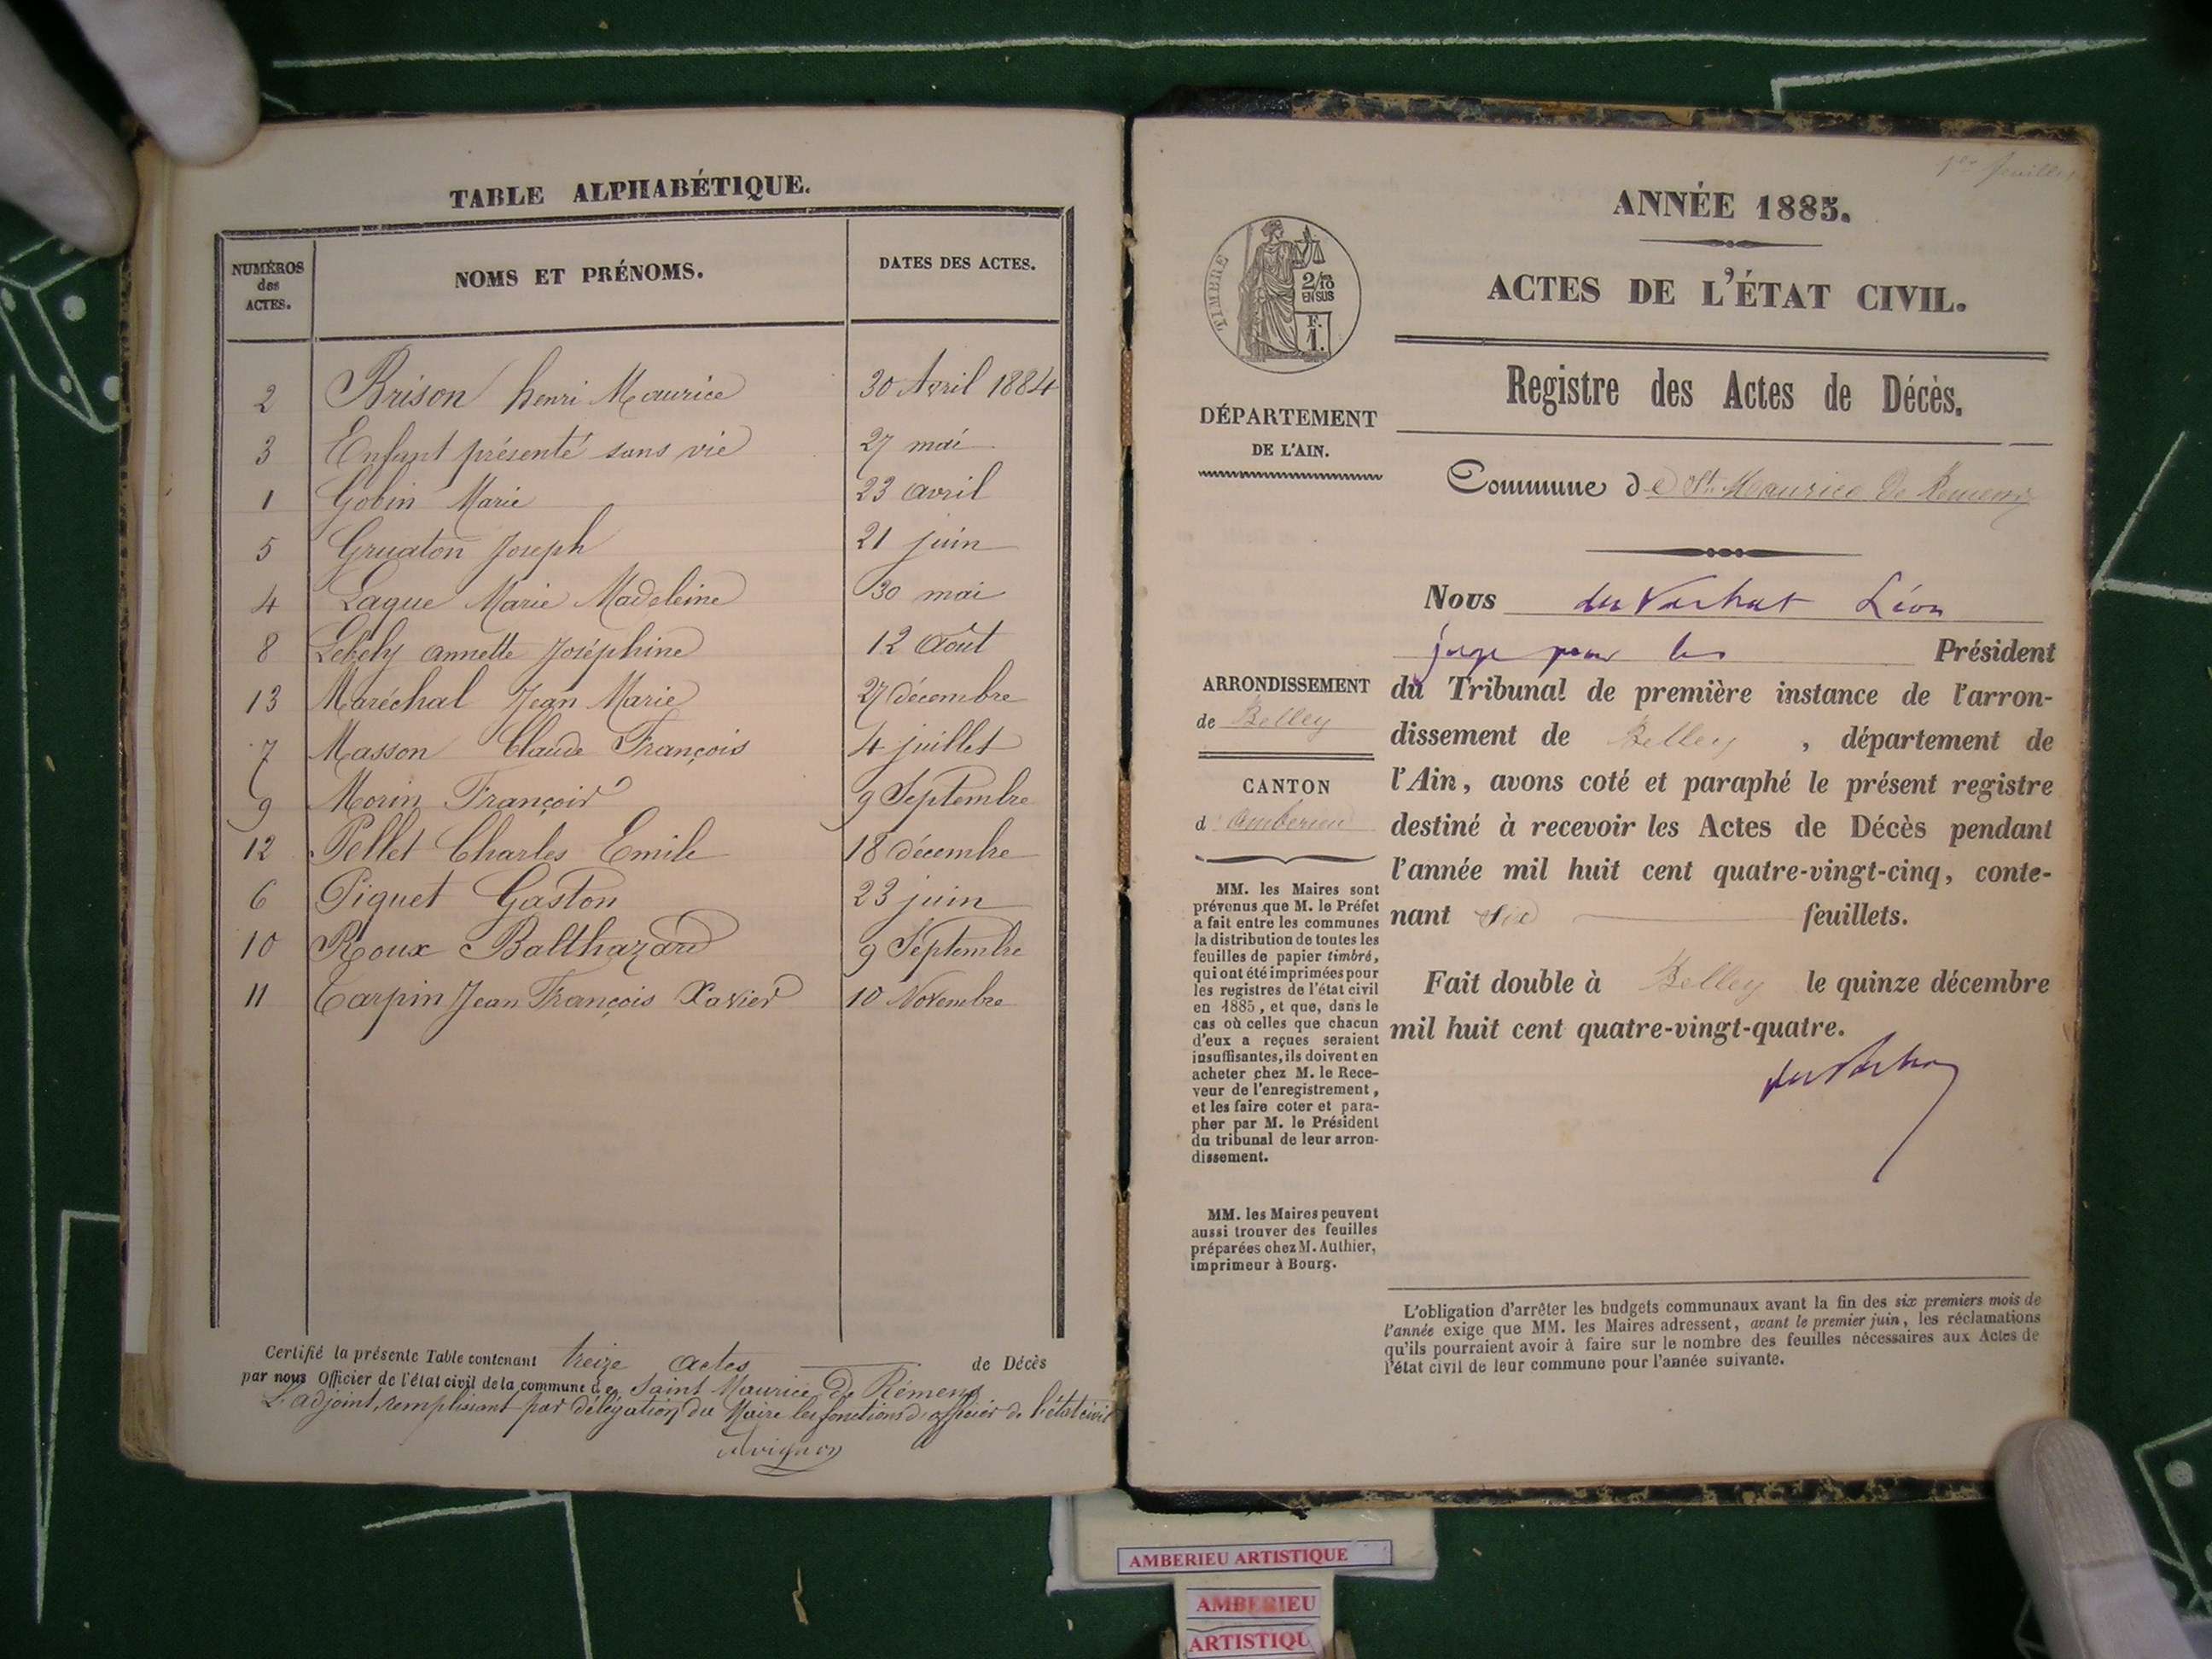 TABLE ALPHABÉTIQUE.
NUMÉROS des ACTES.
NOMS ET PRÉNOMS.
DATES DES ACTES.
2 Brison henri Maurice 30 Avril 1884
3 Enfant présenté sans vie 27 mai
1 Gobin Marie 23 avril
5 Gruaton Joseph 21 juin
4 Lague Marie Madeleine 30 mai
8 annette Joséphine 12 Août
13 Maréchal Jean Marie 27 décembre
7 Masson Claude François 4 juillet
9 Morin François 9 Septembre
12 Pellet Charles Emile 18 décembre
6 Piquet Gaston 23 juin
10 Roux Balthazard 9 Septembre
11 Carpin Jean François Xavier 10 Novembre
Certifié la présente Table contenant treize actes de Décès
par nous Officier de l'état civil de la commune de Saint Maurice De Rémens
L'adjoint, remplissant par délégation du Maire les fonctions d'officier de l'état civil
Avignon
1er feuillet
ANNÉE 1885.
ACTES DE L'ÉTAT CIVIL.
Registre des Actes de Décès.
Commune de St Maurice De Remens
TIMBRE
2/10
EN SUS
F.
1.
DÉPARTEMENT
DE L'AIN.
ARRONDISSEMENT
de Belley
CANTON
d'Ambérieu
MM. les Maires sont
prévenus que M. le Préfet
a fait entre les communes
la distribution de toutes les
feuilles de papier timbré,
qui ont été imprimées pour
les registres de l'état civil
en 1885, et que, dans le
cas où celles que chacun
d'eux a reçues seraient
insuffisantes, ils doivent en
acheter chez M. le Rece-
veur de l'enregistrement,
et les faire coter et para-
pher par M. le Président
du tribunal de leur arron-
dissement.
MM. les Maires peuvent
aussi trouver des feuilles
préparées chez M. Authier,
imprimeur à Bourg.
Nous Léon
juge pour le Président
du Tribunal de première instance de l'arron-
dissement de Belley, département de
l'Ain, avons coté et paraphé le présent registre
destiné à recevoir les Actes de Décès pendant
l'année mil huit cent quatre-vingt-cinq, conte-
nant six feuillets.
Fait double à Belley le quinze décembre
mil huit cent quatre-vingt-quatre.
L'obligation d'arrêter les budgets communaux avant la fin des six premiers mois de
l'année exige que MM. les Maires adressent, avant le premier juin, les réclamations
qu'ils pourraient avoir à faire sur le nombre des feuilles nécessaires aux Actes de
l'état civil de leur commune pour l'année suivante.
AMBERIEU ARTISTIQUE
AMBERIEU
ARTISTIQU